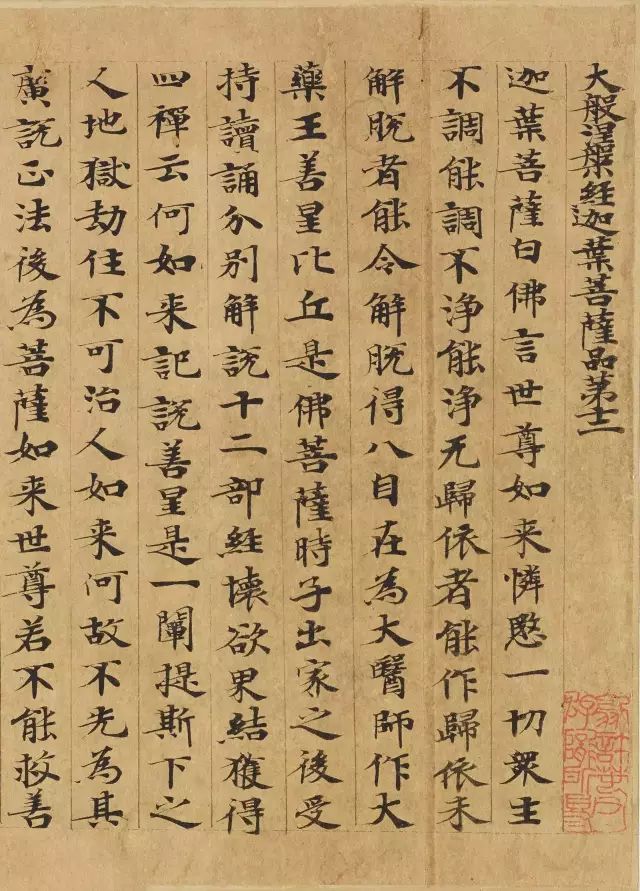 大般涅槃經迦葉菩薩品第十二
迦葉菩薩白佛言世尊如来憐愍一切衆生
不調能調不浄能浄无歸依者能作歸依未
解脱者能令解脱得八自在為大醫師作大
藥王善星比丘是佛菩薩時子出家之後受
持讀誦分别解説十二部経壊欲界結獲得
四禪云何如来記説善星是一闡提斯下之
人地獄劫住不可治人如来何故不先為其
廣説正法後為菩薩如来世尊若不能救善